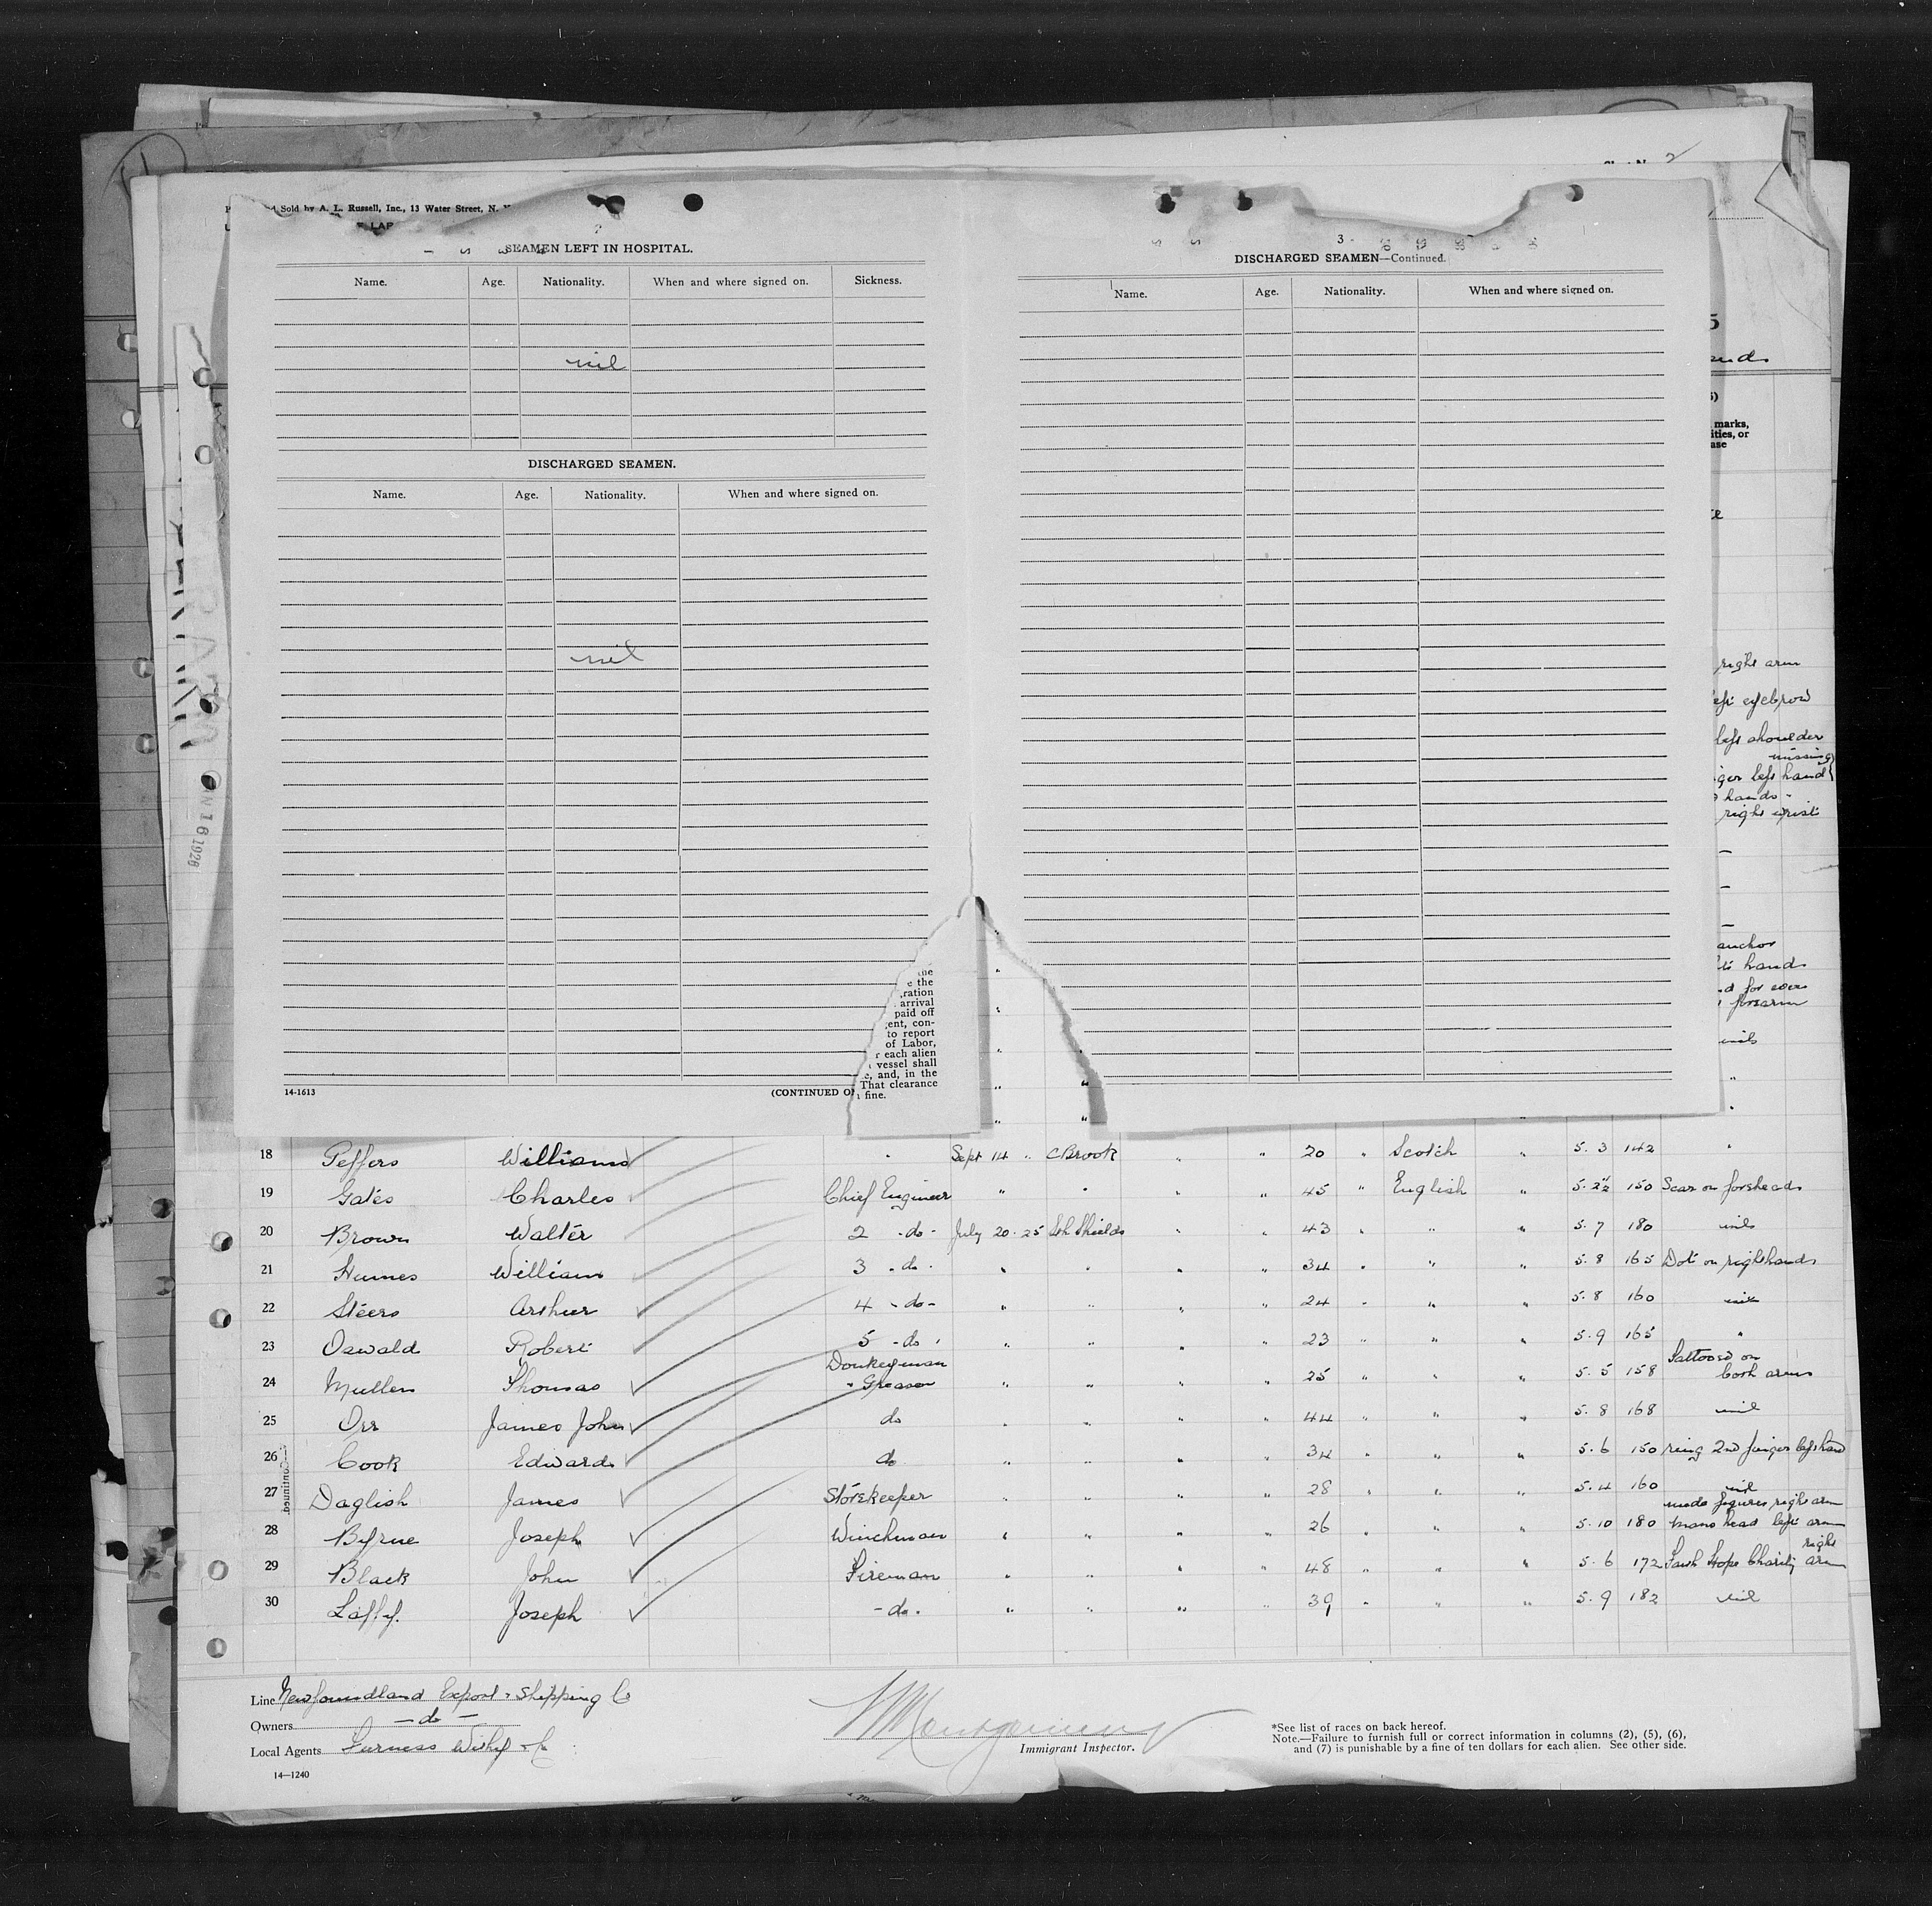 Sold by A. L. Russell, Inc., 13 Water Street, N. Y.
SEAMEN LEFT IN HOSPITAL.
Name. Age. Nationality. When and where signed on. Sickness.
nil
DISCHARGED SEAMEN.
Name. Age. Nationality. When and where signed on.
nil
14-1613
(CONTINUED O
3
DISCHARGED SEAMEN—Continued.
Name. Age. Nationality. When and where signed on.
the
e the
ration
arrival
paid off
ent, con-
to report
of Labor,
r each alien
vessel shall
e, and, in the
That clearance
fine.
5
marks,
ities, or
ase
right arm
eft eyebrow
left shoulder
missing
ger left hand
hands
right wrist
anchor
hand
forearm
N 16 1926
18 Peffers William " Sept 14 " C Brook " " 20 " Scotch " 5. 3 142 "
19 Gates Charles Chief Engineer " " " " 45 " English " 5. 2½ 150 Scar on forehead
20 Brown Walter 2 -do- July 20. 25 Sth Shields " " 43 " " " 5. 7 180 nil
21 Humes William 3 -do- " " " " 34 " " " 5. 8 165 Dot on right hand
22 Steers Arthur 4 -do- " " " " 24 " " " 5. 8 160 nil
23 Oswald Robert 5 -do- " " " " 23 " " " 5. 9 165 "
24 Mullen Thomas Donkeyman " Greaser " " " " 25 " " " 5. 5 158 Tattooed on both arms
25 Orr James John do " " " " 44 " " " 5. 8 168 nil
26 Cook Edward do " " " " 34 " " " 5. 6 150 ring 2nd finger left hand
—Continued
27 Daglish James Storekeeper " " " " 28 " " " 5. 4 160 nil
28 Byrne Joseph Winchman " " " " 26 " " " 5. 10 180 nude figures right arm mans head left arm
29 Black John Fireman " " " " 48 " " " 5. 6 172 Faith Hope Charity right arm
30 Laffy. Joseph -do. " " " " 39 " " " 5. 9 182 nil
Line Newfoundland Export & Shipping Co
Owners —do—
Local Agents Furness Withy & Co
Montgomery
Immigrant Inspector.
*See list of races on back hereof.
Note.—Failure to furnish full or correct information in columns (2), (5), (6),
and (7) is punishable by a fine of ten dollars for each alien. See other side.
14—1240